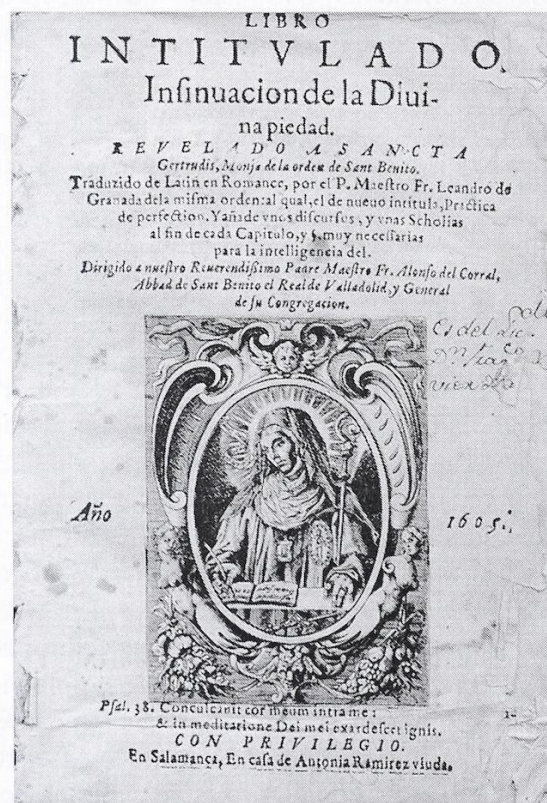 LIBRO
INTITVLADO.
Insinuacion de la Diui-
na piedad.
REVELADO A SANCTA
Gertrudis, Monja de la orden de Sant Benito.
Traduzido de Latin en Romance, por el P. Maestro Fr. Leandro de
Granada dela misma orden: al qual, el de nueuo intitula, Practica
de perfection. Y añade vnos discursos, y vnas Scholias
al fin de cada Capitulo, y §. muy necessarias
para la intelligencia del.
Dirigido a nuestro Reuerendissimo Padre Maestro Fr. Alonso del Corral,
Abbad de Sant Benito el Real de Valladolid, y General
de su Congregacion.
Es del
Año 1605.
Psal. 38. Concalcauit cor meum intra me:
& in meditatione Dei mei exardescet ignis.
CON PRIVILEGIO.
En Salamanca, En casa de Antonia Ramirez viuda.